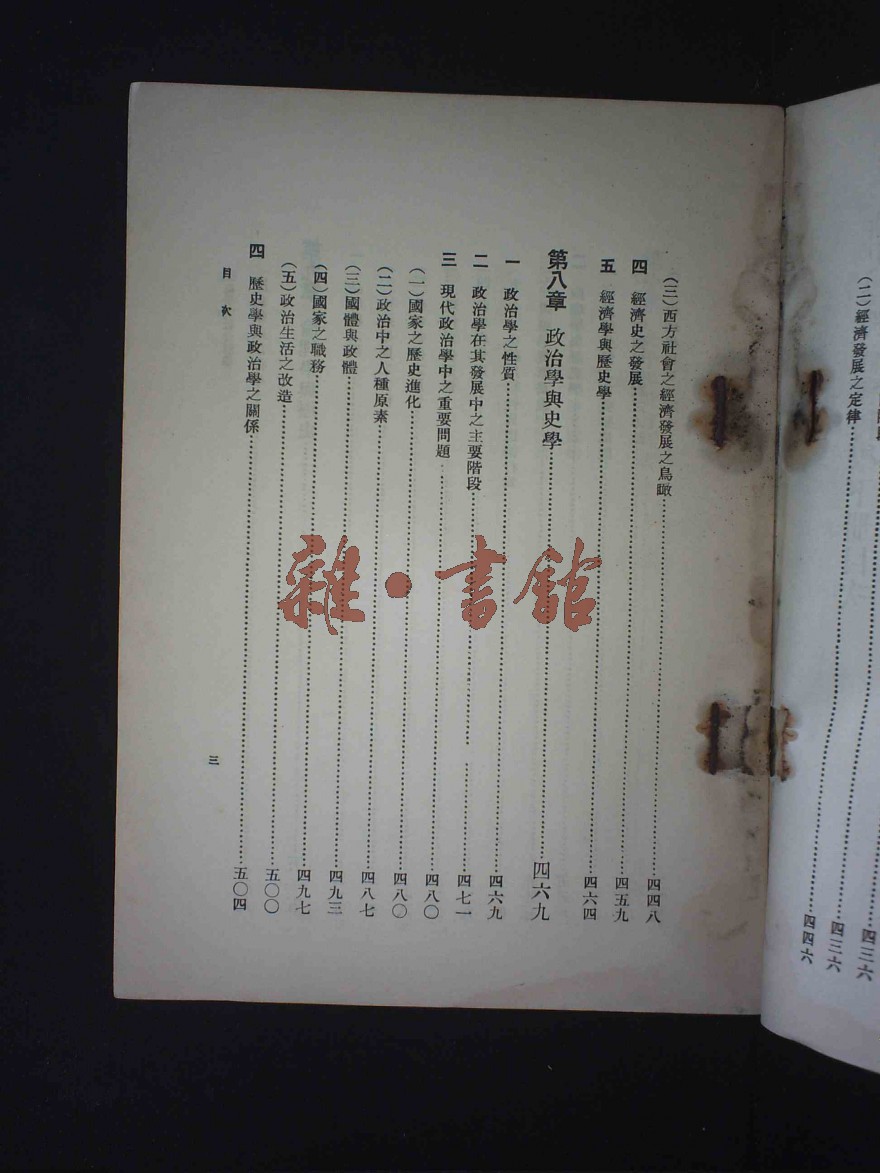 (二)經濟發展之定律……四四六
(三)西方社會之經濟發展之鳥瞰……四四八
四 經濟史之發展……四五九
五 經濟學與歷史學……四六四
第八章 政治學與史學……四六九
一 政治學之性質……四六九
二 政治學在其發展中之主要階段……四七一
三 現代政治學中之重要問題……四八〇
(一)國家之歷史進化……四八〇
(二)政治中之人種原素……四八七
(三)國體與政體……四九三
(四)國家之職務……四九七
(五)政治生活之改造……五〇〇
四 歷史學與政治學之關係……五〇四
目次
三
雜·書館